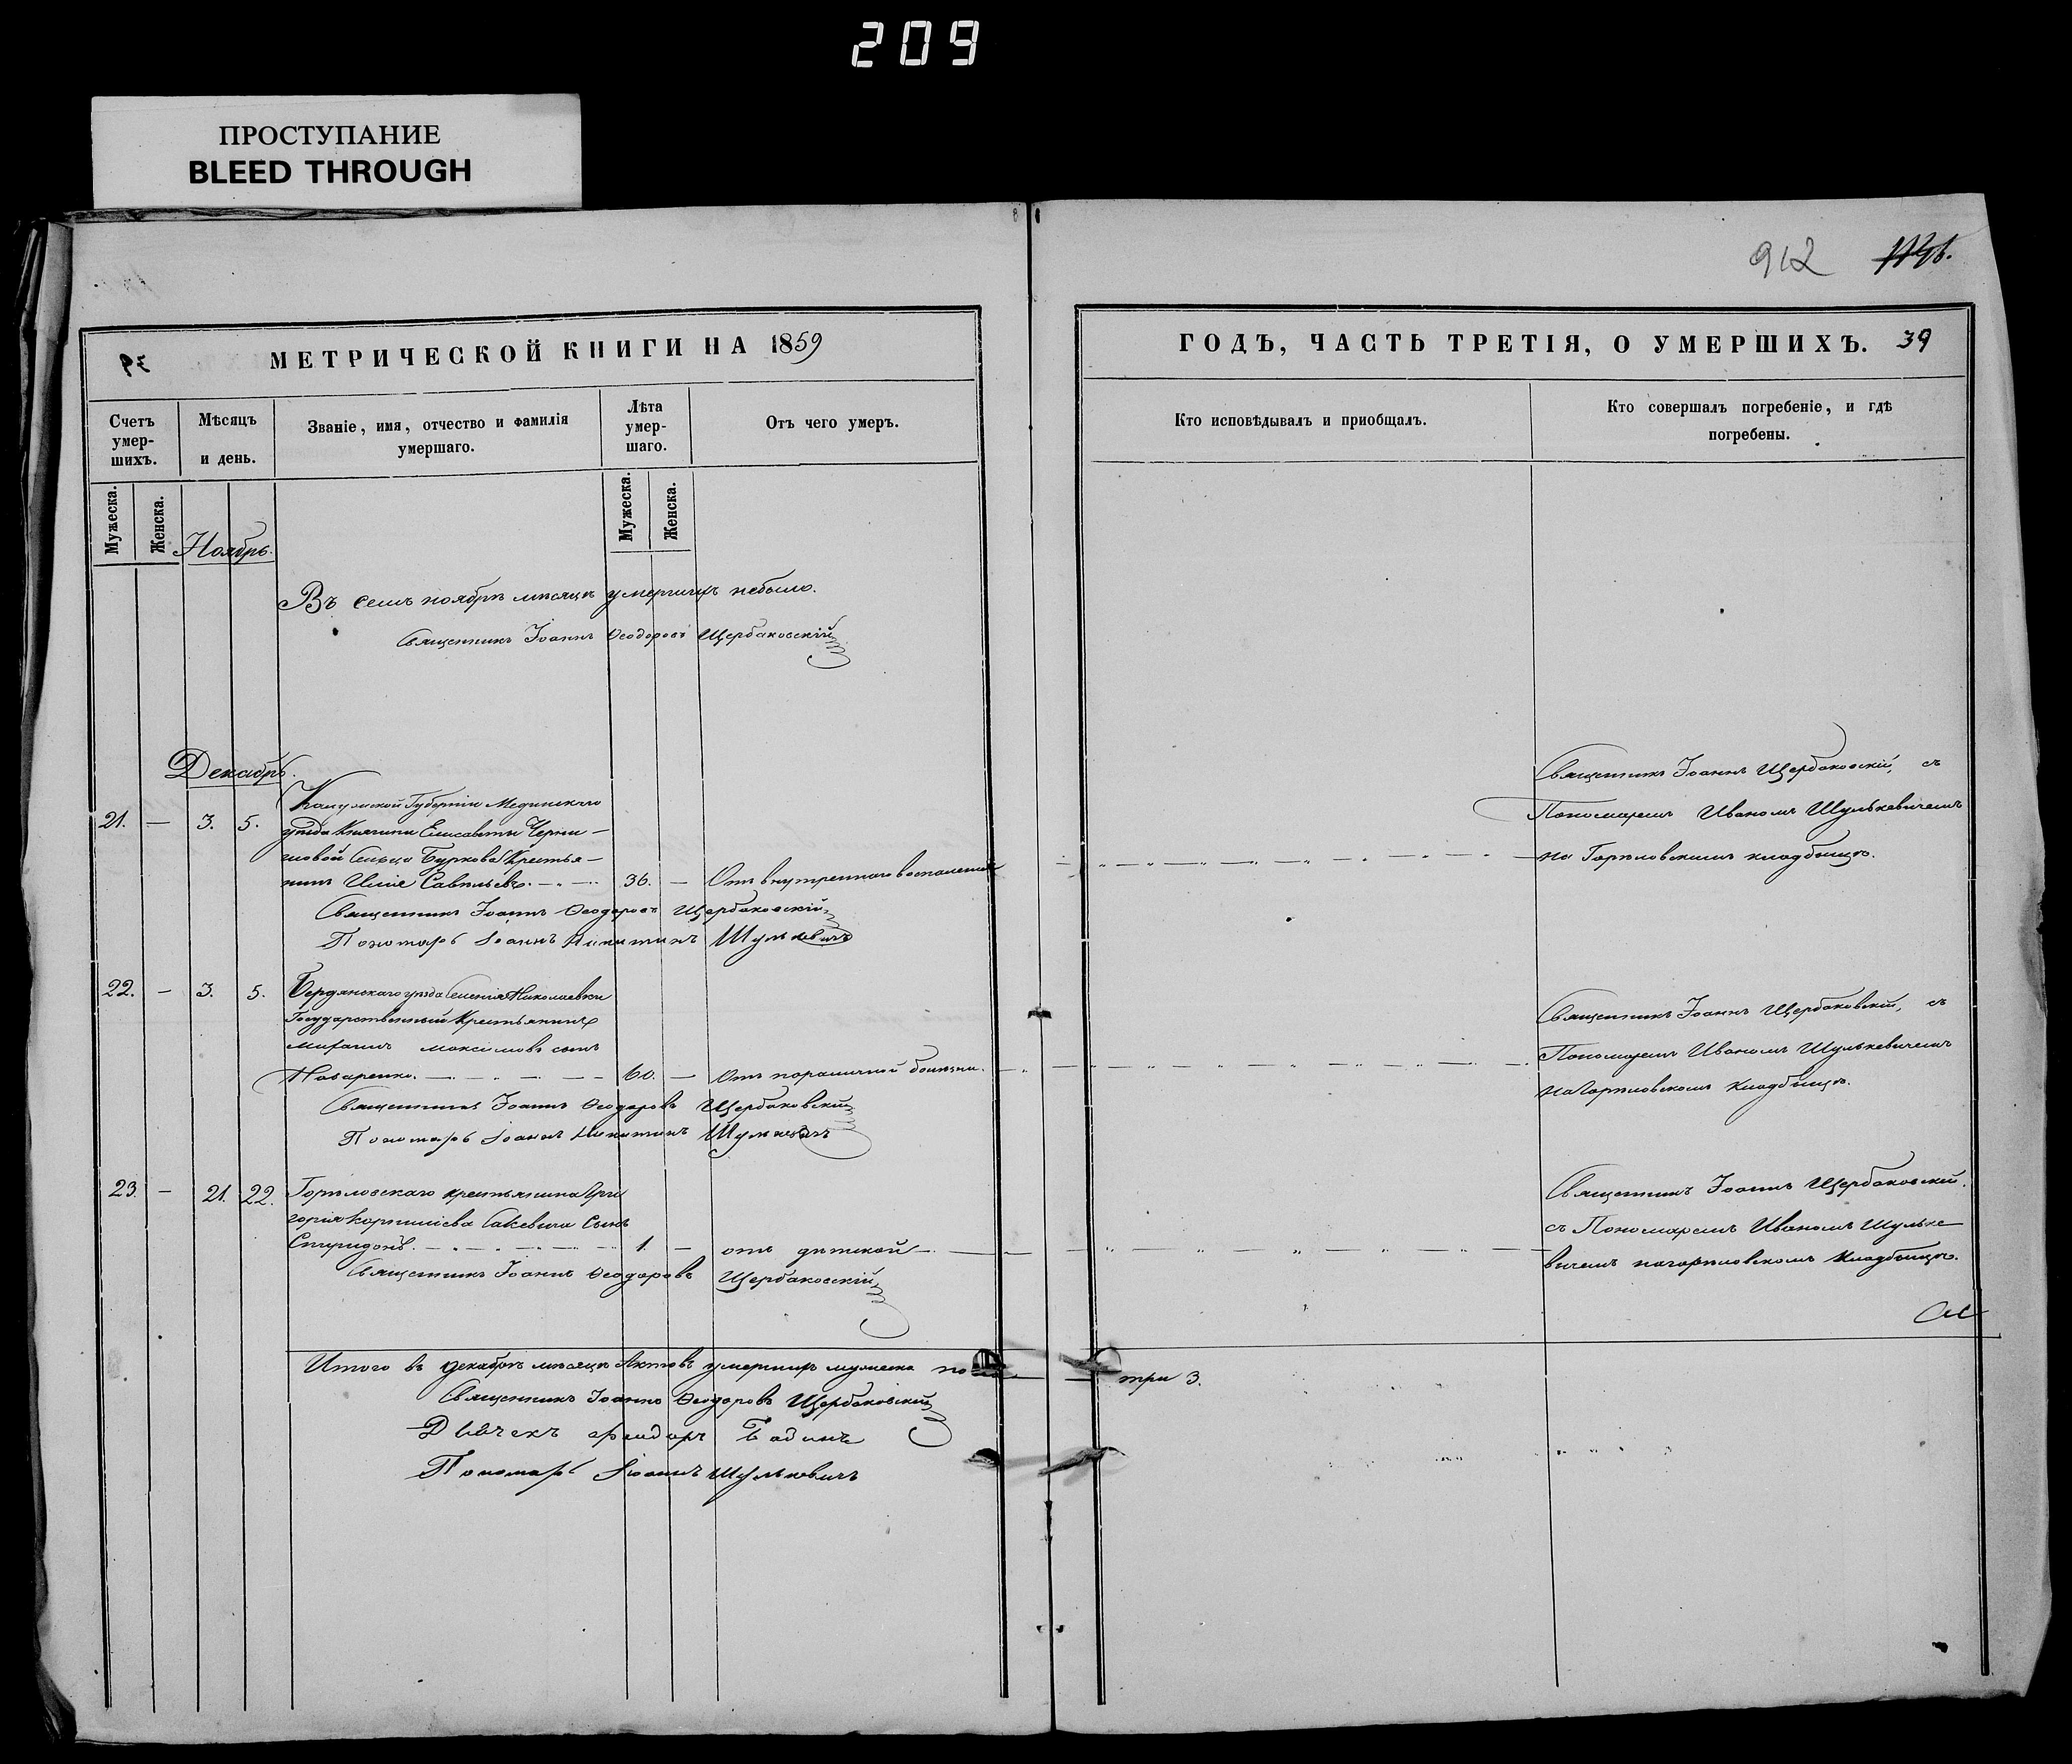 209
ПРОСТУПАНИЕ
BLEED THROUGH
912
МЕТРИЧЕСКОЙ КНИГИ НА 1859
ГОДЪ, ЧАСТЬ ТРЕТІЯ, О УМЕРШИХЪ. 39
Счетъ умер-шихъ.
Мѣсяцъ и день.
Званіе, имя, отчество и фамилія умершаго.
Лѣта умер-шаго.
Отъ чего умеръ.
Кто исповѣдывалъ и пріобщалъ.
Кто совершалъ погребеніе, и гдѣ погребены.
Мужеска.
Женска.
Мужеска.
Женска.
Ноябрь.
Въ семъ ноябрѣ мѣсяцѣ умершихъ небыло.
Священникъ Іоаннъ Ѳеодоровъ Щербаковскій
Декабрь.
21. — 3. 5.
Калужской Губерніи Медынскаго
уѣзда Княгини Елисаветы Черны-
шовой Сельца Буркова Крестья-
нинъ Савельевъ. 36. — Отъ внутренняго воспаленія
Священникъ Іоаннъ Ѳеодоровъ Щербаковскій
Пономарь Іоаннъ Никитинъ Шулькевичъ
Священникъ Іоаннъ Щербаковскій, съ
Пономаремъ Иваномъ Шулькевичемъ
на Горѣловскомъ кладбищѣ.
22. — 3. 5.
Бердянскаго уѣзда Селенія Николаевки
Государственный Крестьянинъ
Михаилъ Максимовъ сынъ
Назаренко. 60. — Отъ параличной болѣзни.
Священникъ Іоаннъ Ѳеодоровъ Щербаковскій
Пономарь Іоаннъ Никитинъ Шулькевичъ
Священникъ Іоаннъ Щербаковскій, съ
Пономаремъ Иваномъ Шулькевичемъ
на Горѣловскомъ Кладбищѣ.
23. — 21. 22.
Горѣловскаго крестьянина Гри
горія Корниліева Сакевича Сынъ
Спиридонъ. 1. — отъ дѣтской
Священникъ Іоаннъ Ѳеодоровъ Щербаковскій
Священникъ Іоаннъ Щербаковскій,
съ Пономаремъ Иваномъ Шульке
вичемъ на горѣловскомъ Кладбищѣ.
Итого въ декабрѣ мѣсяцѣ Актовъ умершихъ мужеска пола три 3.
Священникъ Іоаннъ Ѳеодоровъ Щербаковскій
Дьячекъ Феодоръ
Пономарь Іоаннъ Шулькевичъ